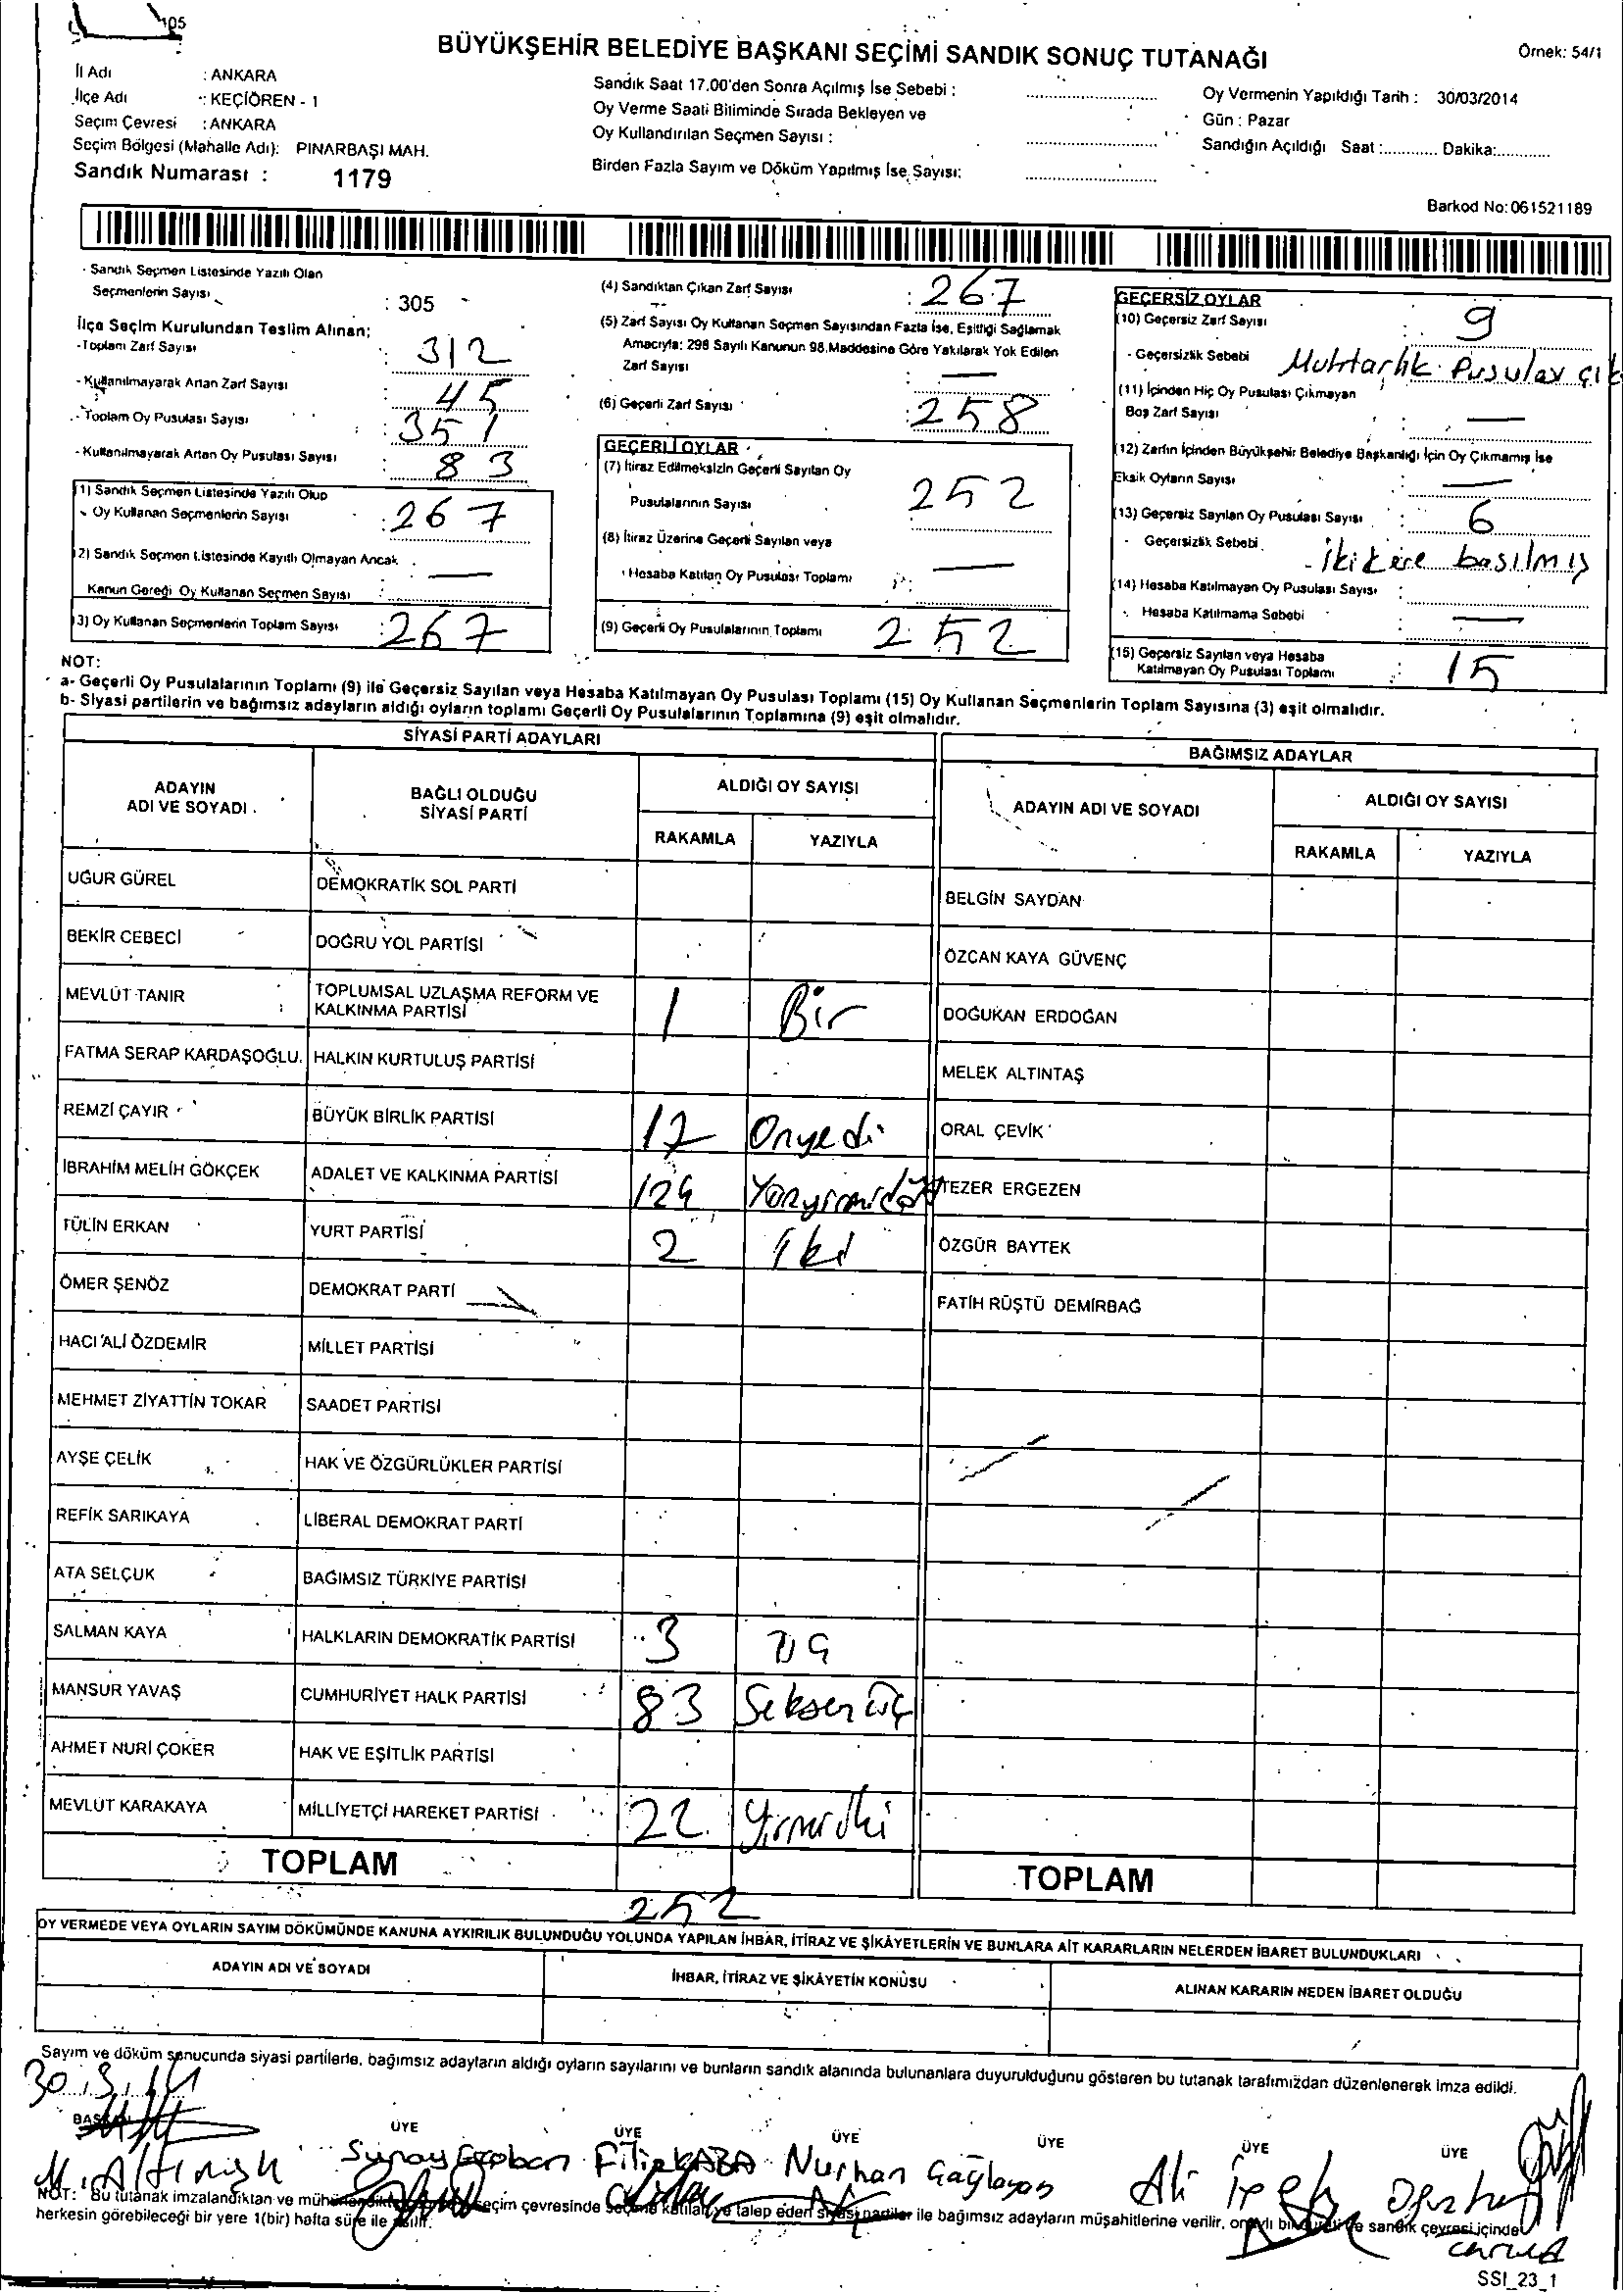 105
BÜYÜKŞEHİR BELEDİYE BAŞKANI SEÇİMİ SANDIK SONUÇ TUTANAĞI
Örnek: 54/1
İl Adı : ANKARA
İlçe Adı : KEÇİÖREN - 1
Seçim Çevresi : ANKARA
Seçim Bölgesi (Mahalle Adı): PINARBAŞI MAH.
Sandık Numarası : 1179
Sandık Saat 17.00'den Sonra Açılmış İse Sebebi :
Oy Verme Saati Bitiminde Sırada Bekleyen ve
Oy Kullandırılan Seçmen Sayısı :
Birden Fazla Sayım ve Döküm Yapılmış İse Sayısı:
Oy Vermenin Yapıldığı Tarih : 30/03/2014
Gün : Pazar
Sandığın Açıldığı Saat :............ Dakika:...........
Barkod No: 061521189
- Sandık Seçmen Listesinde Yazılı Olan
Seçmenlerin Sayısı : 305
İlçe Seçim Kurulundan Teslim Alınan;
-Toplam Zarf Sayısı : 312
- Kullanılmayarak Artan Zarf Sayısı : 45
- Toplam Oy Pusulası Sayısı : 351
- Kullanılmayarak Artan Oy Pusulası Sayısı : 83
(1) Sandık Seçmen Listesinde Yazılı Olup
Oy Kullanan Seçmenlerin Sayısı : 267
(2) Sandık Seçmen Listesinde Kayıtlı Olmayan Ancak
Kanun Gereği Oy Kullanan Seçmen Sayısı : —
(3) Oy Kullanan Seçmenlerin Toplam Sayısı : 267
(4) Sandıktan Çıkan Zarf Sayısı : 267
(5) Zarf Sayısı Oy Kullanan Seçmen Sayısından Fazla İse, Eşitliği Sağlamak
Amacıyla: 298 Sayılı Kanunun 98.Maddesine Göre Yakılarak Yok Edilen
Zarf Sayısı : —
(6) Geçerli Zarf Sayısı : 258
GEÇERLİ OYLAR
(7) İtiraz Edilmeksizin Geçerli Sayılan Oy
Pusulalarının Sayısı 252
(8) İtiraz Üzerine Geçerli Sayılan veya
Hesaba Katılan Oy Pusulası Toplamı : —
(9) Geçerli Oy Pusulalarının Toplamı 252
GEÇERSİZ OYLAR
(10) Geçersiz Zarf Sayısı : 9
- Geçersizlik Sebebi Muhtarlık Pusulası
(11) İçinden Hiç Oy Pusulası Çıkmayan
Boş Zarf Sayısı : —
(12) Zarfın İçinden Büyükşehir Belediye Başkanlığı İçin Oy Çıkmamış İse
Eksik Oyların Sayısı : —
(13) Geçersiz Sayılan Oy Pusulası Sayısı : 6
- Geçersizlik Sebebi iki kere basılmış
(14) Hesaba Katılmayan Oy Pusulası Sayısı :
Hesaba Katılmama Sebebi : —
(15) Geçersiz Sayılan veya Hesaba
Katılmayan Oy Pusulası Toplamı : 15
NOT:
a- Geçerli Oy Pusulalarının Toplamı (9) ile Geçersiz Sayılan veya Hesaba Katılmayan Oy Pusulası Toplamı (15) Oy Kullanan Seçmenlerin Toplam Sayısına (3) eşit olmalıdır.
b- Siyasi partilerin ve bağımsız adayların aldığı oyların toplamı Geçerli Oy Pusulalarının Toplamına (9) eşit olmalıdır.
SİYASİ PARTİ ADAYLARI
ADAYIN ADI VE SOYADI
BAĞLI OLDUĞU SİYASİ PARTİ
ALDIĞI OY SAYISI
RAKAMLA YAZIYLA
UĞUR GÜREL DEMOKRATİK SOL PARTİ
BEKİR CEBECİ DOĞRU YOL PARTİSİ
MEVLÜT TANIR TOPLUMSAL UZLAŞMA REFORM VE KALKINMA PARTİSİ 1 Bir
FATMA SERAP KARDAŞOĞLU HALKIN KURTULUŞ PARTİSİ
REMZİ ÇAYIR BÜYÜK BİRLİK PARTİSİ 17 Onyedi
İBRAHİM MELİH GÖKÇEK ADALET VE KALKINMA PARTİSİ 124 Yüzyirmidört
TÜLİN ERKAN YURT PARTİSİ 2 iki
ÖMER ŞENÖZ DEMOKRAT PARTİ
HACI ALİ ÖZDEMİR MİLLET PARTİSİ
MEHMET ZİYATTİN TOKAR SAADET PARTİSİ
AYŞE ÇELİK HAK VE ÖZGÜRLÜKLER PARTİSİ
REFİK SARIKAYA LİBERAL DEMOKRAT PARTİ
ATA SELÇUK BAĞIMSIZ TÜRKİYE PARTİSİ
SALMAN KAYA HALKLARIN DEMOKRATİK PARTİSİ 3 üç
MANSUR YAVAŞ CUMHURİYET HALK PARTİSİ 83 Seksen üç
AHMET NURİ ÇOKER HAK VE EŞİTLİK PARTİSİ
MEVLÜT KARAKAYA MİLLİYETÇİ HAREKET PARTİSİ 22 Yirmi iki
TOPLAM 252
BAĞIMSIZ ADAYLAR
ADAYIN ADI VE SOYADI
ALDIĞI OY SAYISI
RAKAMLA YAZIYLA
BELGİN SAYDAN
ÖZCAN KAYA GÜVENÇ
DOĞUKAN ERDOĞAN
MELEK ALTINTAŞ
ORAL ÇEVİK
TEZER ERGEZEN
ÖZGÜR BAYTEK
FATİH RÜŞTÜ DEMİRBAĞ
TOPLAM
OY VERMEDE VEYA OYLARIN SAYIM DÖKÜMÜNDE KANUNA AYKIRILIK BULUNDUĞU YOLUNDA YAPILAN İHBAR, İTİRAZ VE ŞİKÂYETLERİN VE BUNLARA AİT KARARLARIN NELERDEN İBARET BULUNDUKLARI
ADAYIN ADI VE SOYADI
İHBAR, İTİRAZ VE ŞİKÂYETİN KONUSU
ALINAN KARARIN NEDEN İBARET OLDUĞU
Sayım ve döküm sonucunda siyasi partilerle, bağımsız adayların aldığı oyların sayılarını ve bunların sandık alanında bulunanlara duyurulduğunu gösteren bu tutanak tarafımızdan düzenlenerek imza edildi.
30.3.14
BAŞKAN ÜYE ÜYE ÜYE ÜYE ÜYE ÜYE
Filiz KABA Nurhan Çağlayan Ali İpek
NOT: Bu tutanak imzalandıktan ve seçim çevresinde seçime katılan ve talep eden siyasi partiler ile bağımsız adayların müşahitlerine verilir, onaylı bir sandık çevresi içinde
herkesin görebileceği bir yere 1(bir) hafta süre ile asılır.
SSI_23_1